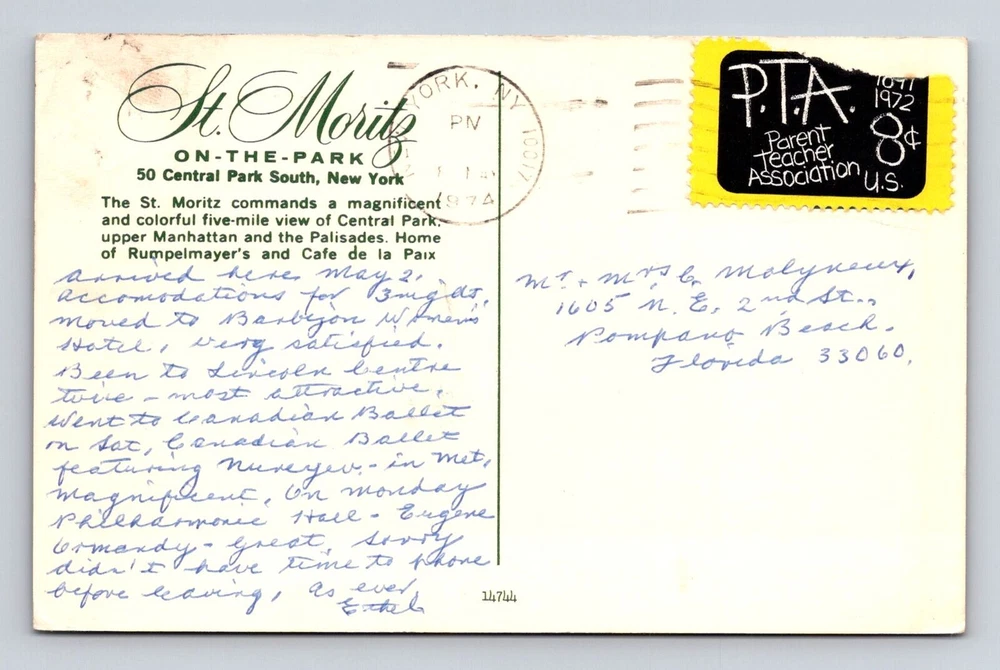 St. Moritz
ON-THE-PARK
50 Central Park South, New York
The St. Moritz commands a magnificent
and colorful five-mile view of Central Park,
upper Manhattan and the Palisades. Home
of Rumpelmayer's and Cafe de la Paix
arrived here May 2.
accomodations for 3 mgds.
moved to Barbizon Women's
Hotel, very satisfied.
Been to Lincoln Centre
twice - most attractive.
Went to Canadian Ballet
on Sat, Canadian Ballet
featuring Nureyev - in Met,
magnificent, On Monday
Philharmonic Hall - Eugene
Ormandy - great, Sorry
didn't have time to phone
before leaving, as ever,
Ethel
YORK, NY
PM
1974
10017
P.T.A.
1897
1972
8¢
Parent
teacher
Association U.S.
Mr. + Mrs C. Molyneux,
1605 N. E. 2nd St..
Pompano Beach.
Florida 33060.
14744